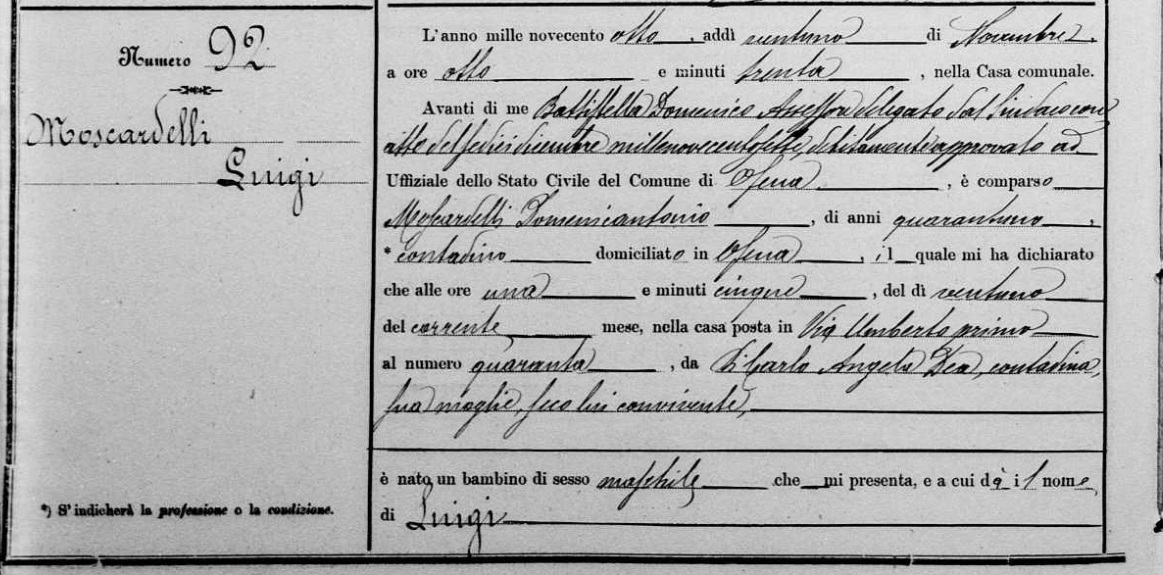 Numero 92
Moscardelli
Luigi
*) S'indicherà la professione o la condizione.
L'anno mille novecento otto, addì ventuno di Novembre,
a ore otto e minuti trenta, nella Casa comunale.
Avanti di me Battistella Domenico Assessore delegato dal Sindaco con
atto del sedici dicembre millenovecentosette, debitamente approvato ad
Uffiziale dello Stato Civile del Comune di Ofena, è comparso
Moscardelli Domenicantonio, di anni quarantuno,
* contadino domiciliato in Ofena, il quale mi ha dichiarato
che alle ore una e minuti cinque, del dì ventuno
del corrente mese, nella casa posta in Via Umberto primo
al numero quaranta, da Di Carlo Angela Dea, contadina,
sua moglie, seco lui convivente,
è nato un bambino di sesso maschile che mi presenta, e a cui dà il nome
di Luigi